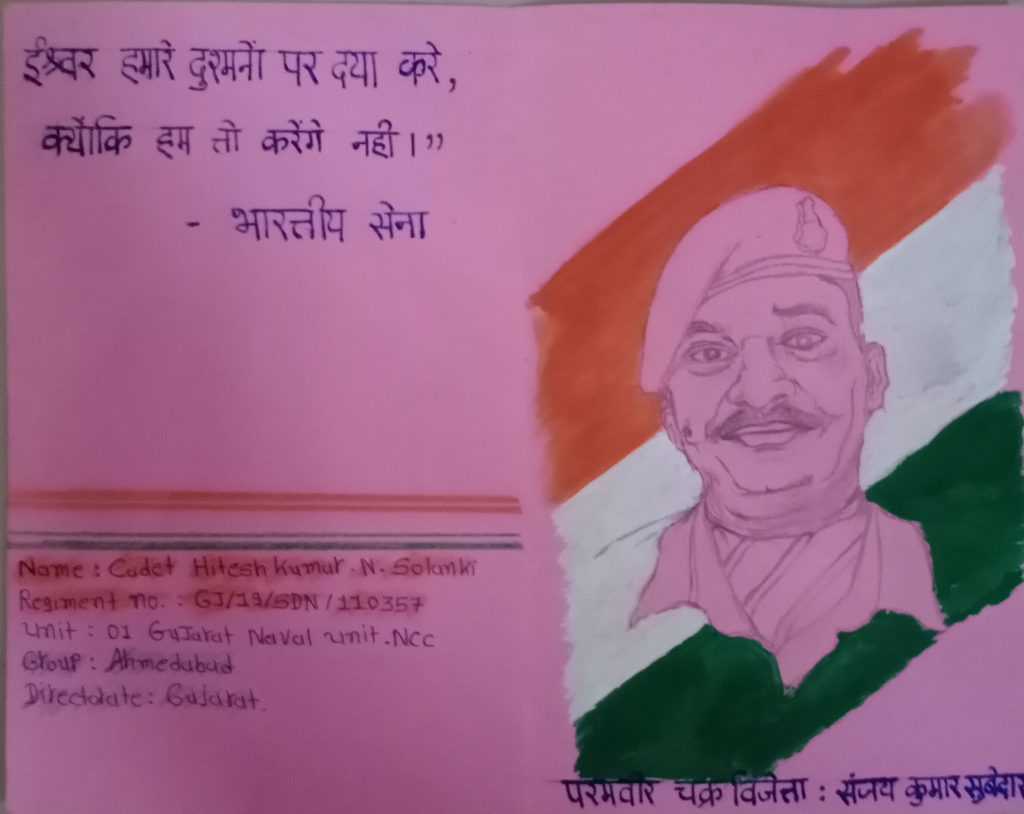 ईश्र्वर हमारे दुश्मनों पर दया करे,
क्योंकि हम तो करेंगे नही।”
- भारतीय सेना
Name : Cadet Hitesh Kumar. N. Solanki
Regiment no. : GJ/19/SDN/110357
Unit : 01 Gujarat Naval unit. Ncc
Group : Ahmedabad
Directorate : Gujarat.
परमवीर चक्र विजेता : संजय कुमार सुबेदार